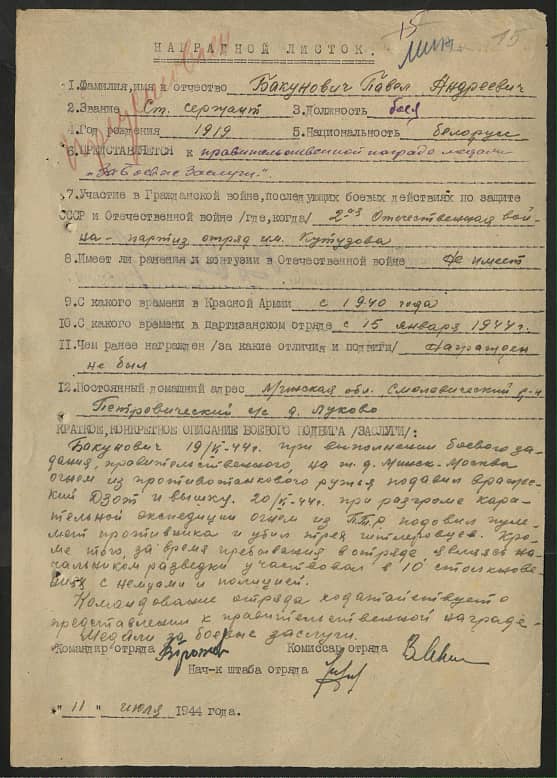 15
Мин 15
НАГРАДНОЙ ЛИСТОК.
1.Фамилия,имя и отчество Бакунович Павел Андреевич
2.Звание Ст. сержант 3.Должность боец
4.Год рождения 1919 5.Национальность белорус
6.ПРЕДСТАВЛЯЕТСЯ к правительственной награде медали
"За Боевые Заслуги".
7.Участие в Гражданской войне,последующих боевых действиях по защите
СССР и Отечественной войне /где,когда/ 2ая Отечественная вой-
на - партиз. отряд им. Кутузова
8.Имеет ли ранения и контузии в Отечественной войне Не имеет
9.С какого времени в Красной Армии с 1940 года
10.С какого времени в партизанском отряде с 15 января 1944г.
11.Чем ранее награжден /за какие отличия и подвиги/ Награжден
не был
12.Постоянный домашний адрес Минская обл. Смолевический р-н
Петровический с/с д. Луково
КРАТКОЕ,КОНКРЕТНОЕ ОПИСАНИЕ БОЕВОГО ПОДВИГА /ЗАСЛУГИ/:
Бакунович 19/VI-44г. при выполнении боевого за-
дания, правительственного, на ж.д. Минск-Москва
огнем из противотанкового ружья подавил вражес-
кий Дзот и вышку. 20/VI-44г. при разгроме кара-
тельной экспедиции огнем из П.Т.Р. подовил пуле-
мот противника и убил трех гитлеровцев. Кро-
ме того, за время пребывания в отряде являясь на-
чальником разведки участвовал в 10 столкнове-
ниях с немцами и полицией.
Командование отряда ходатайствует о
представлении к правительственной награде-
Медали за боевые заслуги.
Командир отряда Комиссар отряда
Нач-к штаба отряда
"11" июля 1944 года.